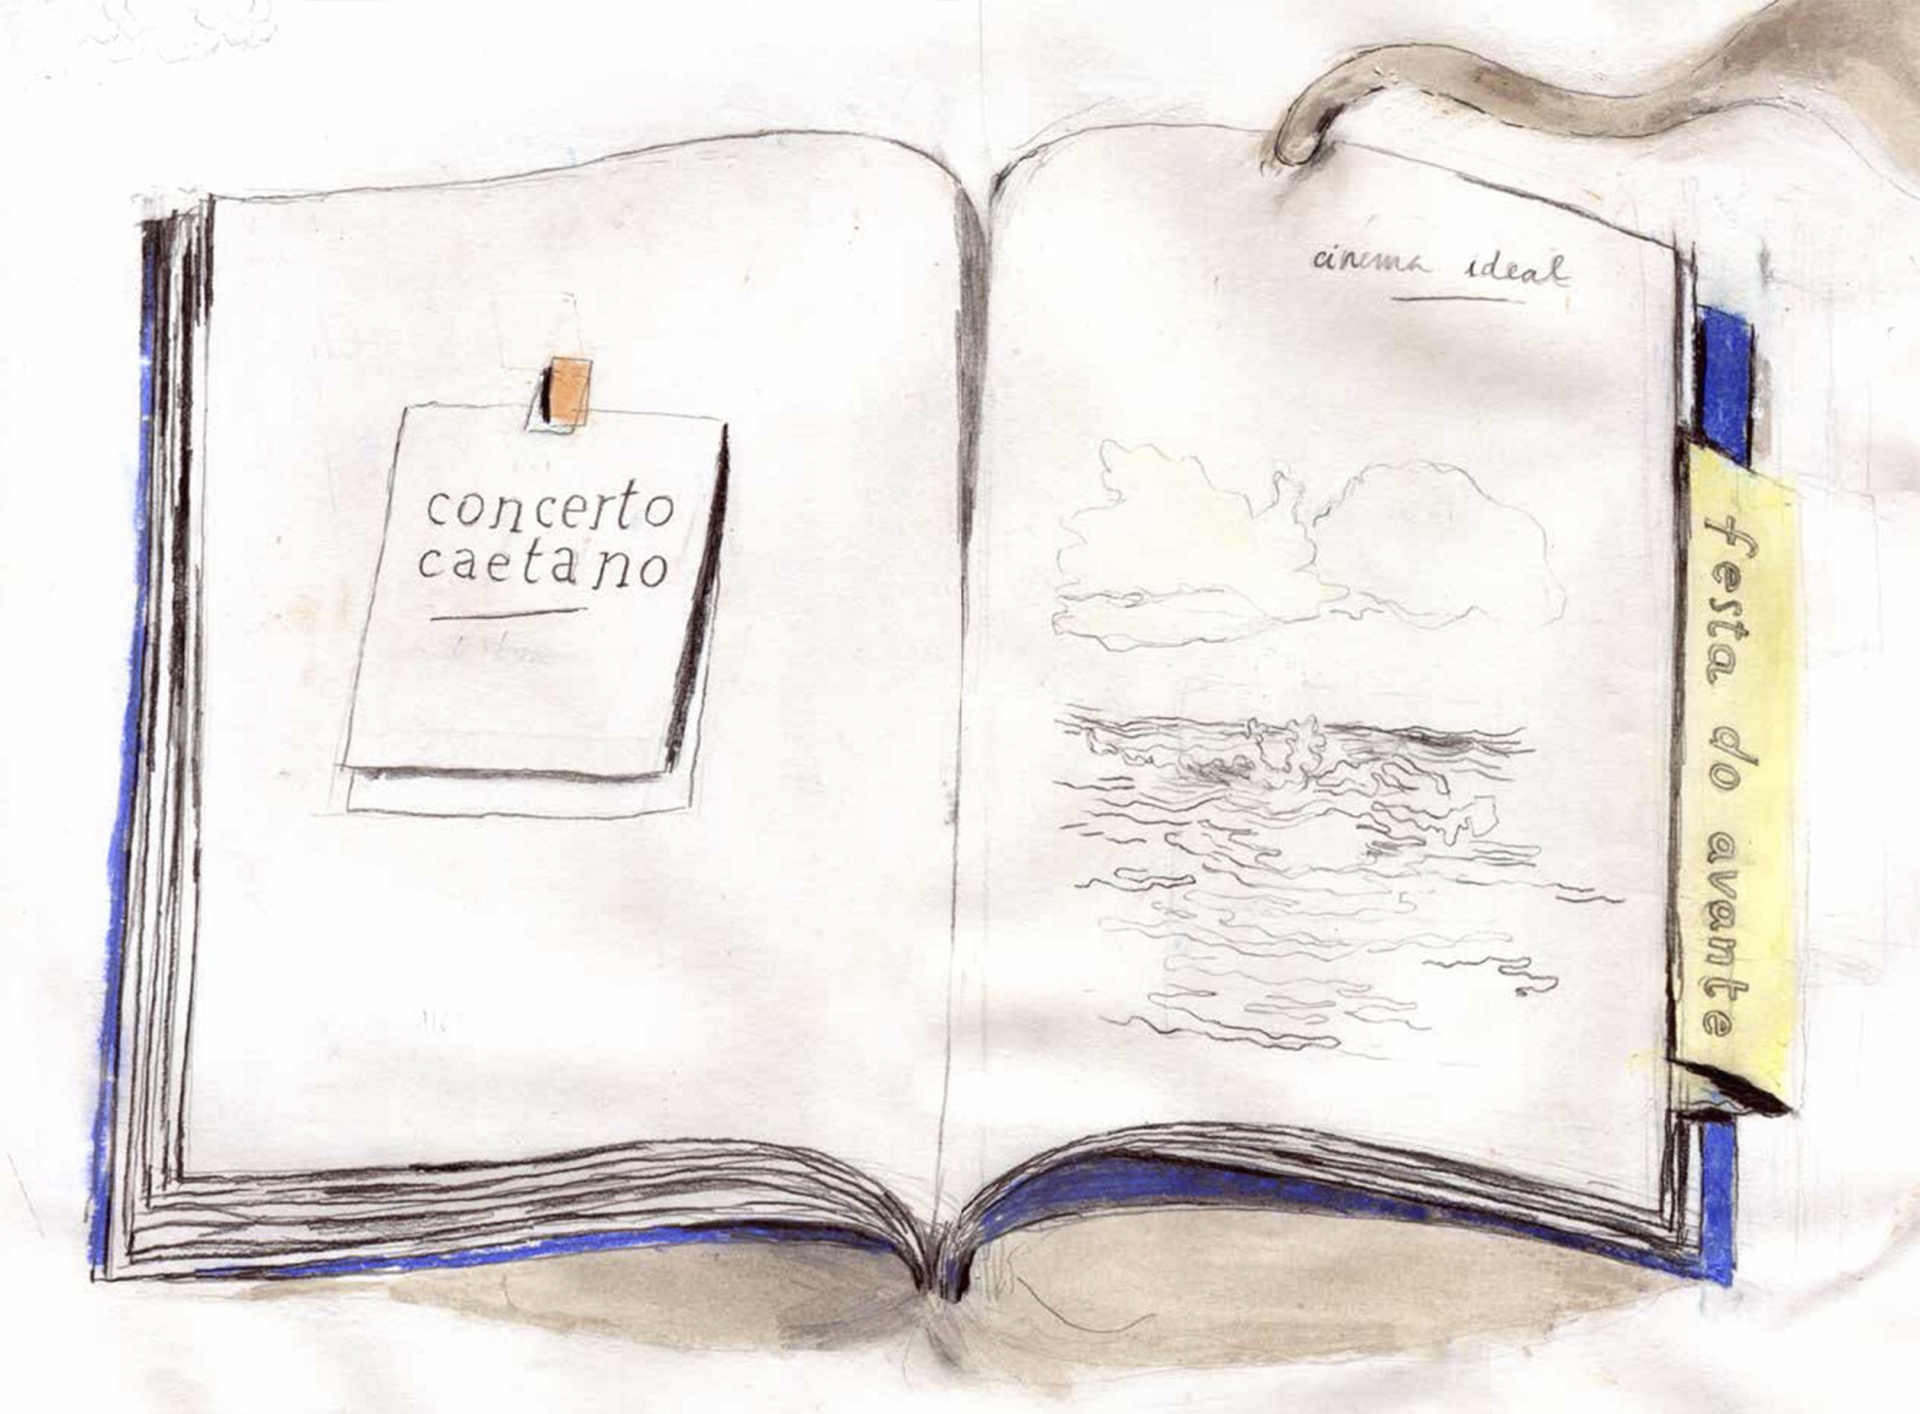 concerto
caetano
cinema ideal
festa do avante